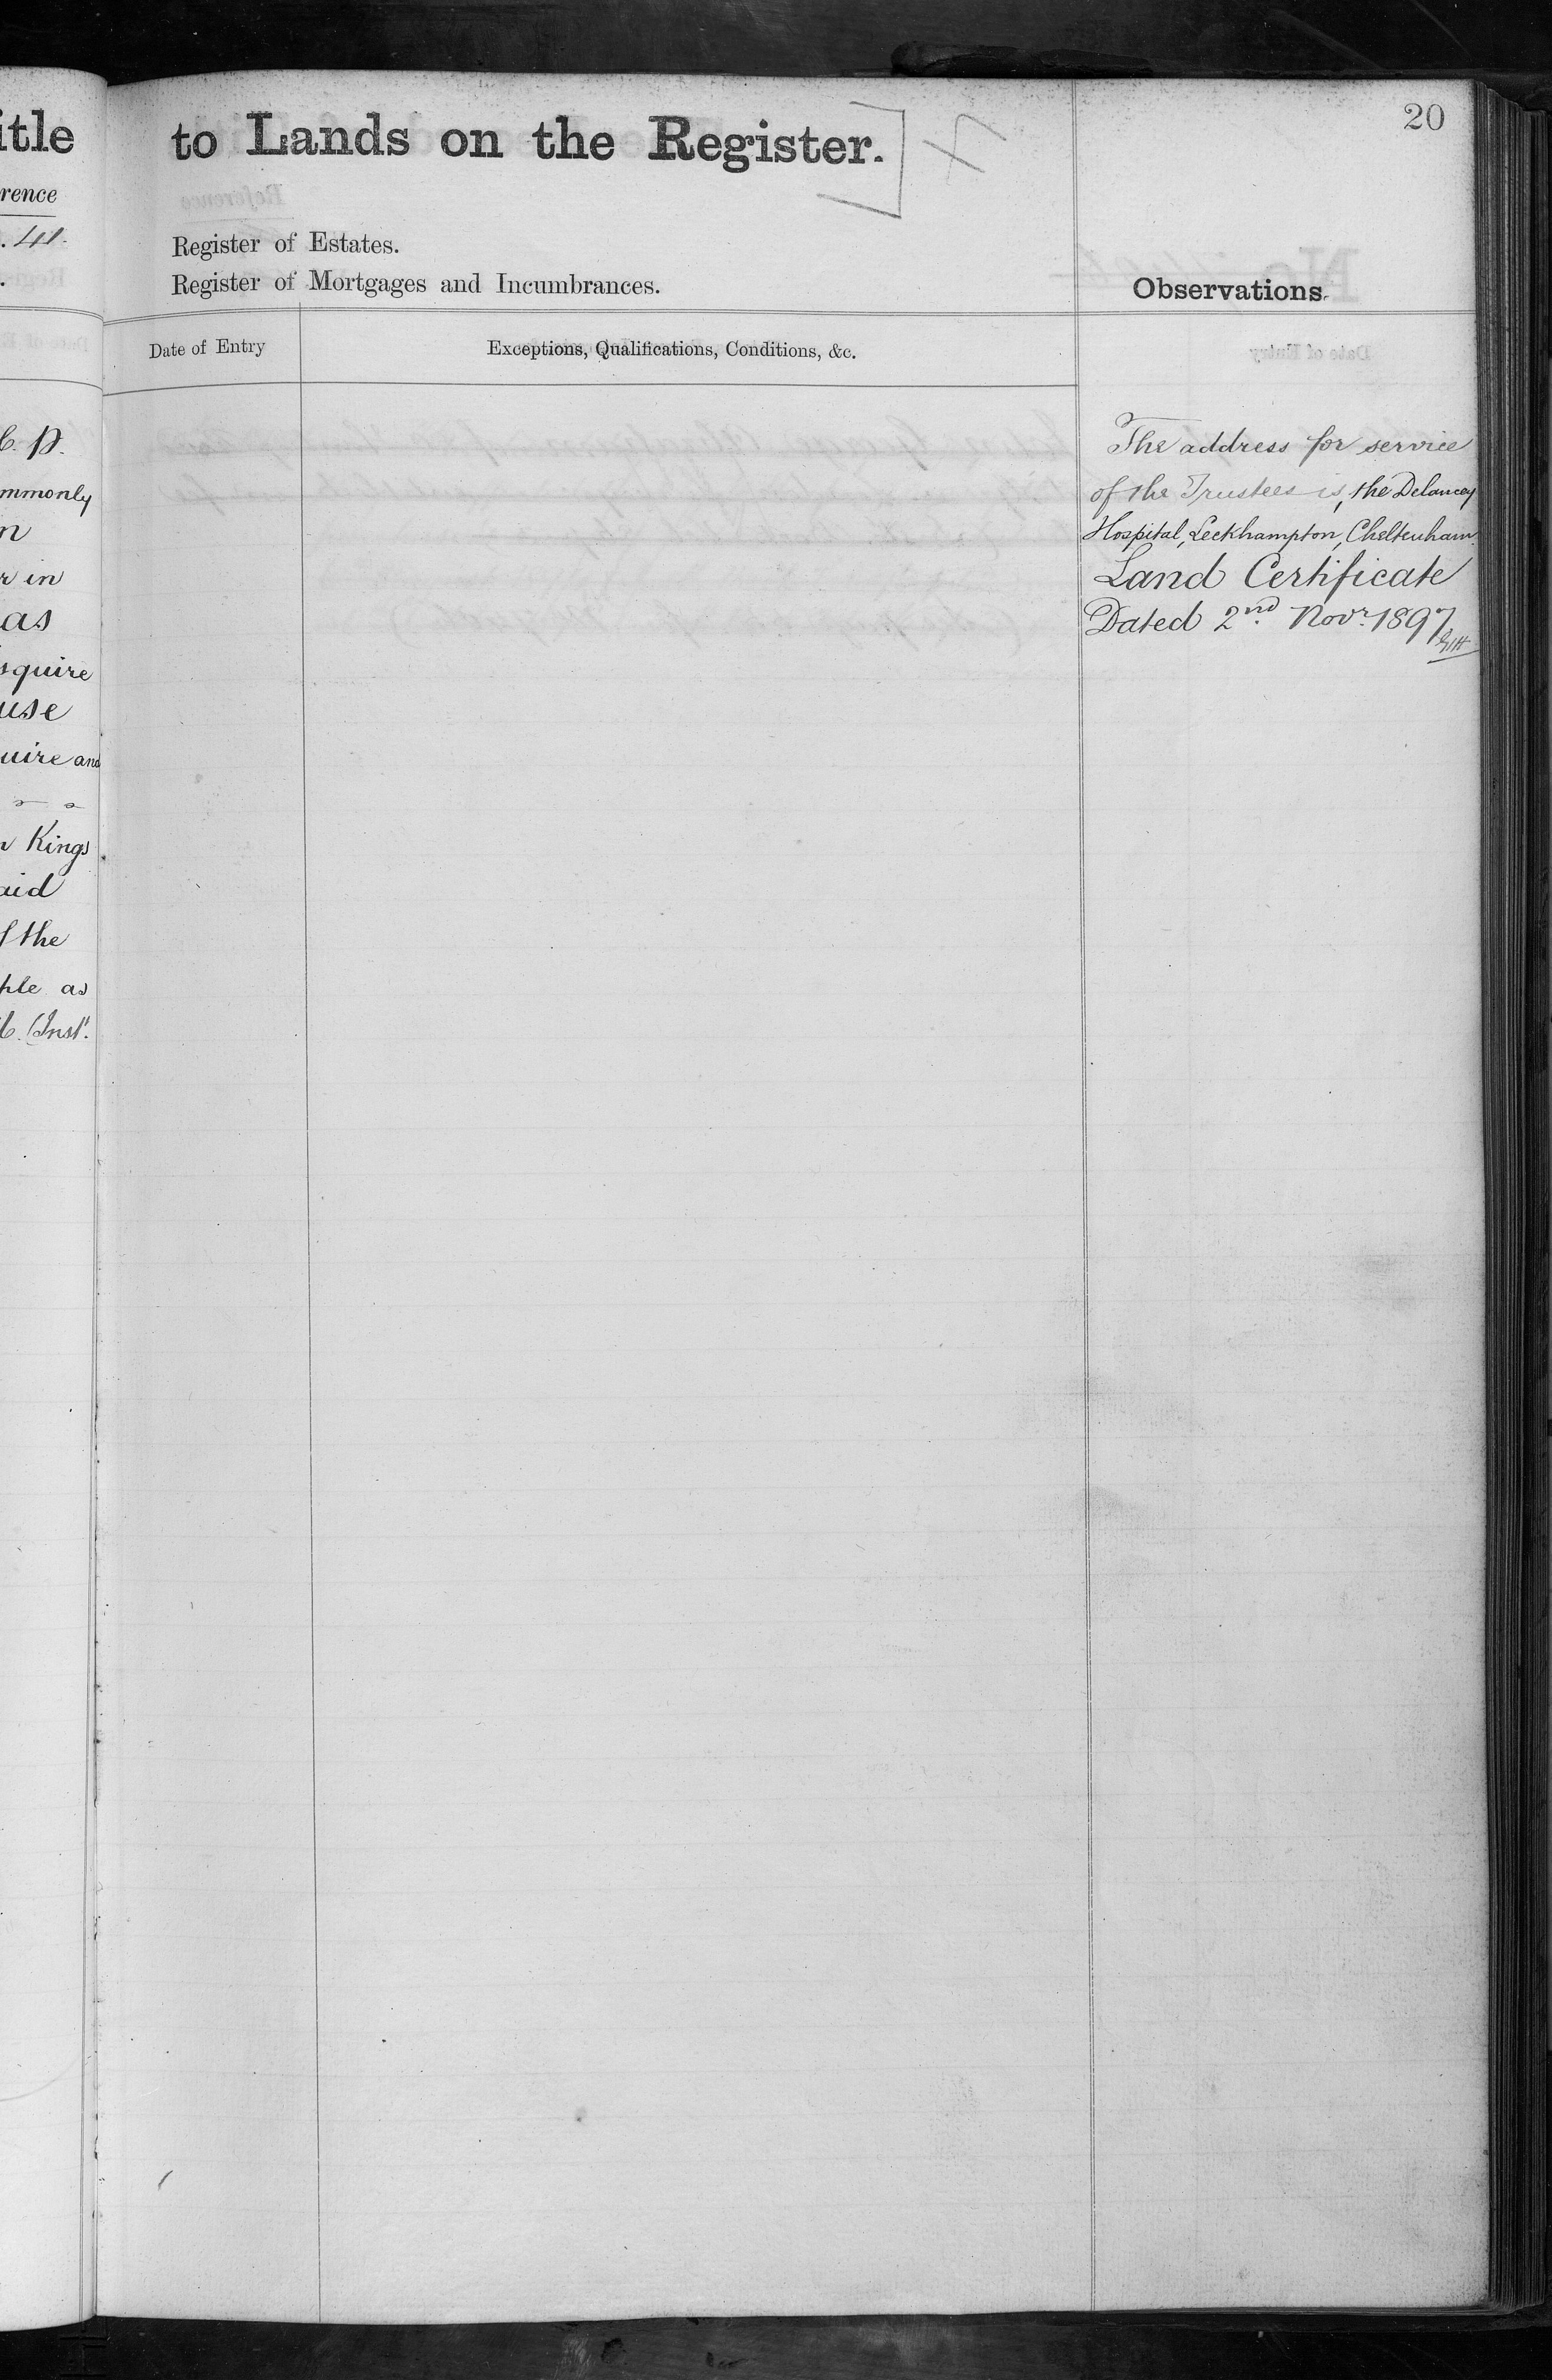 itle
rence
. 41.
C. P.
mmonly
n
r in
as
squire
use
uire and
n Kings
aid
f the
ple as
(Inst.
20
to Lands on the Register.
Register of Estates.
Register of Mortgages and Incumbrances.
Observations.
Date of Entry
Exceptions, Qualifications, Conditions, &c.
The address for service
of the Trustees is, the Delancey
Hospital, Leckhampton, Cheltenham.
Land Certificate
Dated 2nd Novr. 1897